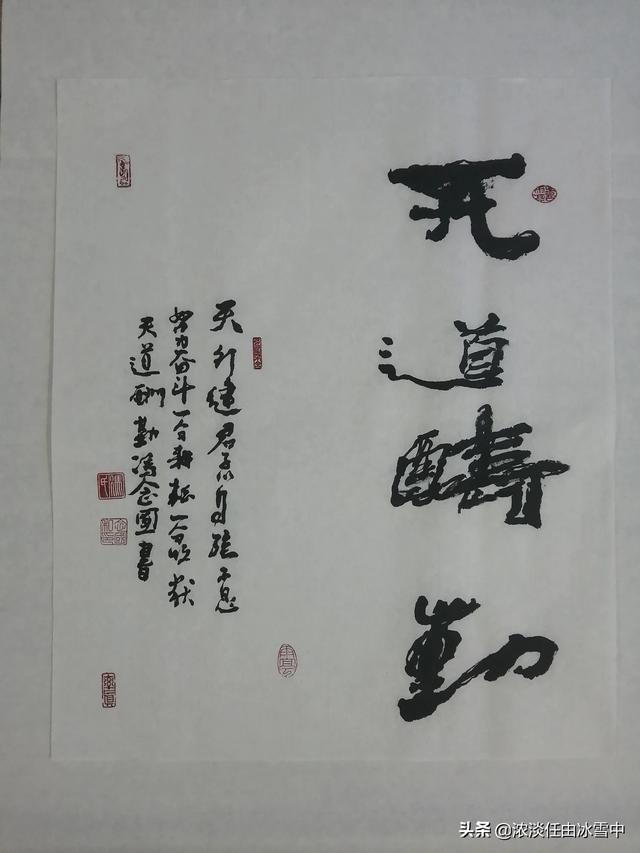 天
道
醻
勤
天行健君子自强不息
努力奋斗一分耕耘一分收获
天道酬勤冯国書
头条 @浓淡任由冰雪中